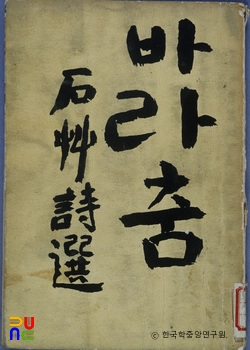 바라춤
石艸詩選
ⓒ 한국학중앙연구원